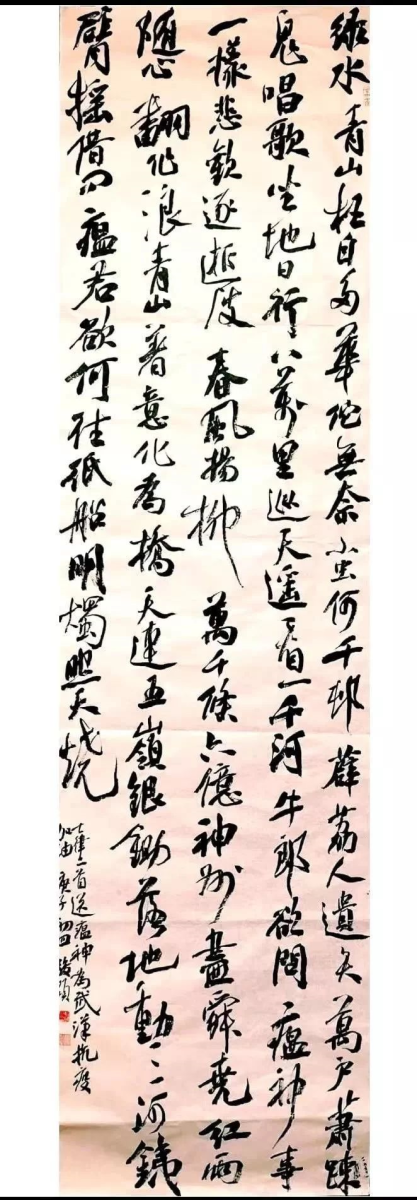 綠水青山枉自多華陀無奈小虫何千邨薜荔人遺矢萬戶蕭疎
鬼唱歌坐地日行八萬里巡天遙看一千河牛郎欲問瘟神事
一樣悲歡逐逝波春風楊柳萬千條六億神州盡舜堯紅雨
隨心翻作浪青山著意化為橋天連五嶺銀鋤落地動三河鐵
臂搖借问瘟君欲何往紙船明燭照天燒
七律二首送瘟神為武漢抗疫
加油 庚子初四